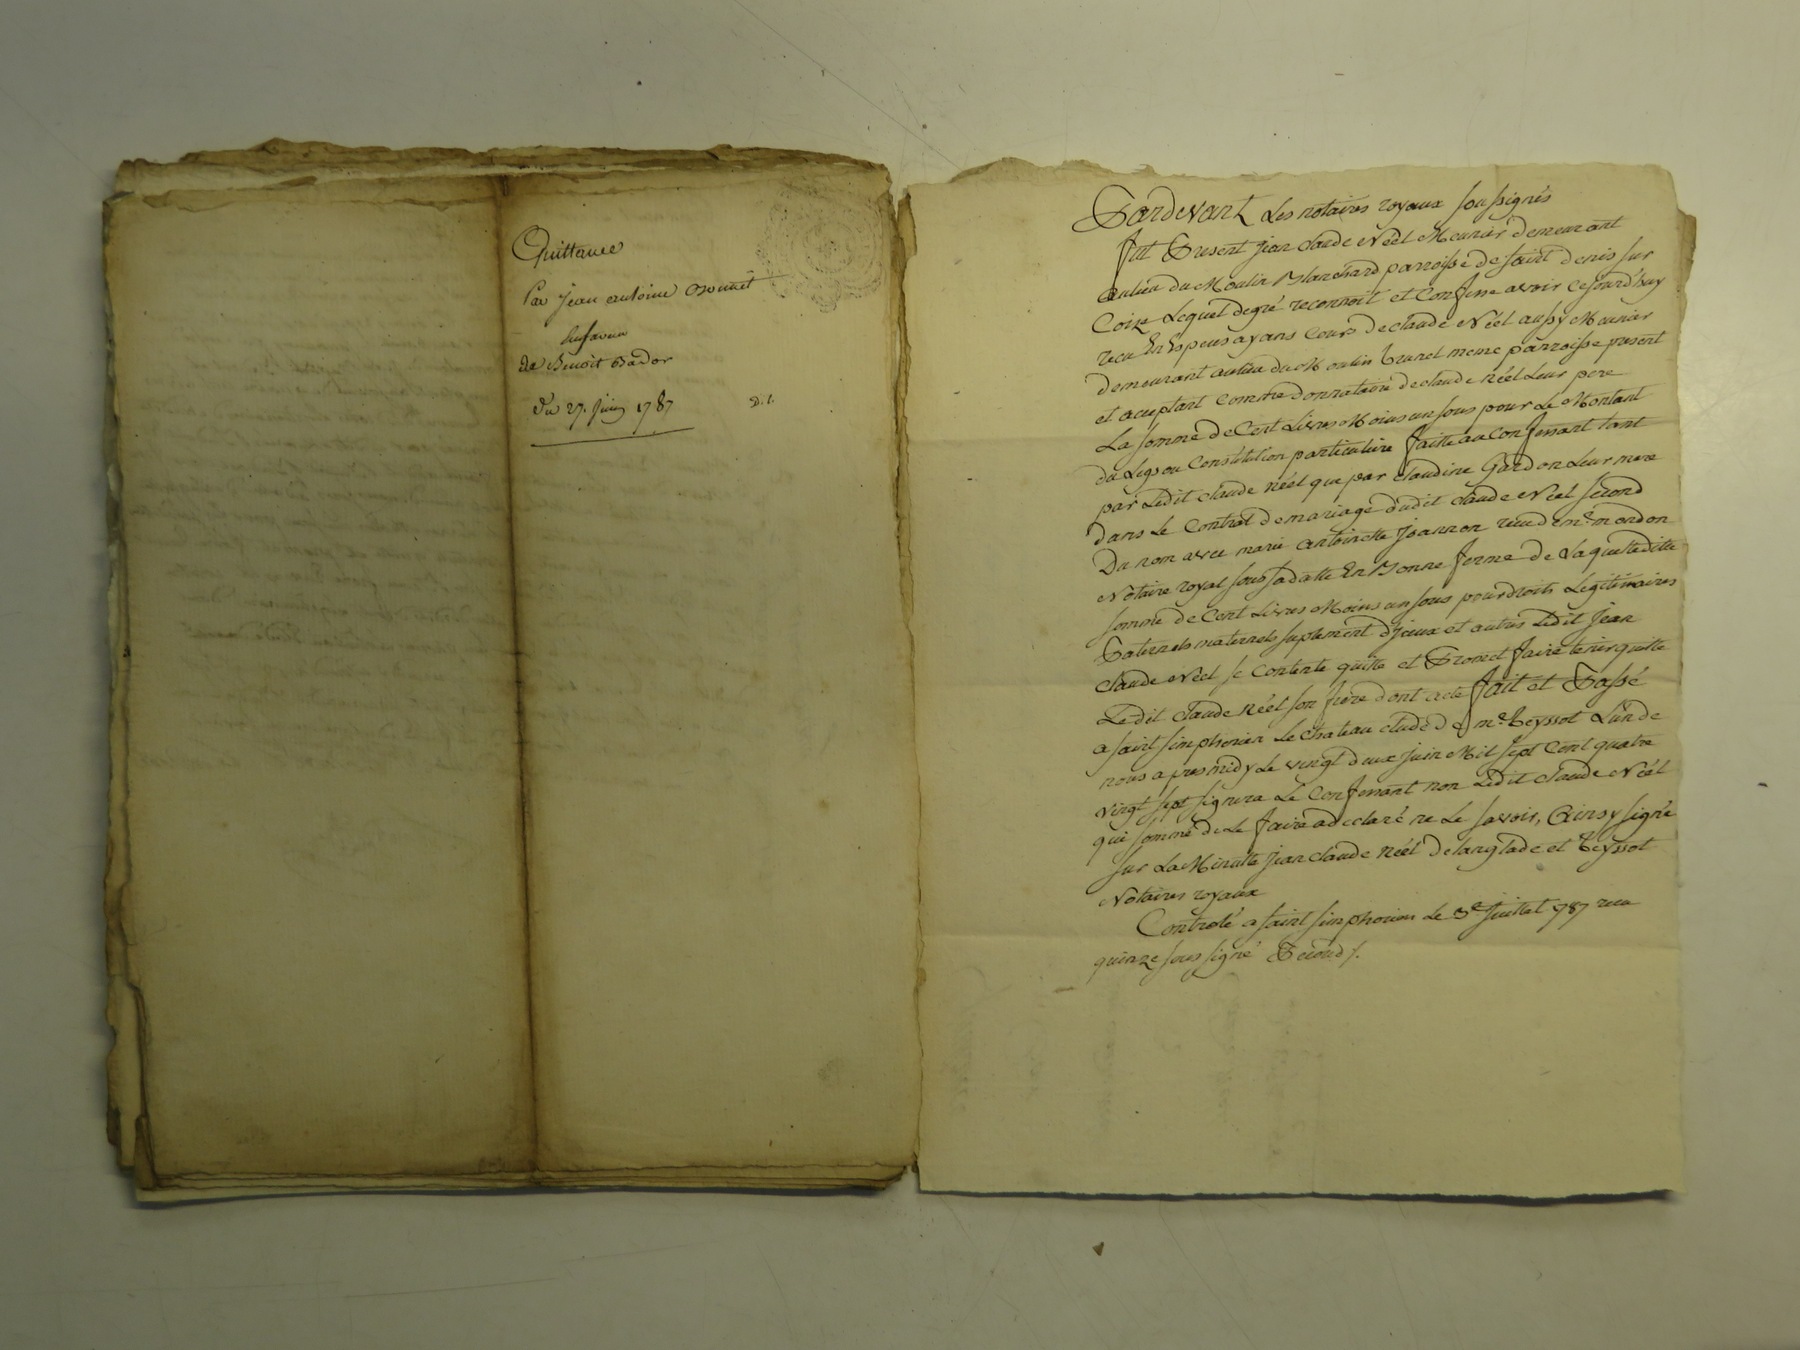 Quittance
Par Jean antoine Bonnet
En faveur
de Benoit Bador
Du 27. Juin 1787
D. t.
Pardevant Les notaires royaux soussignés
fut Present jean claude Néel Meunier demeurant
aulieu du Moulin Blanchard parroisse de saint denis sur
Coize Lequel degré reconnoit et Confesse avoir cejourd'huy
recu En Especes ayans Cours de claude Néel aussy Meunier
demeurant aulieu du Moulin brunel meme parroisse present
et aceptant comme donnataire de claude néel Leur pere
La somme de Cent Livres Moins un sous pour Le Montant
du Legs ou Constitution particuliere faitte au Confessant tant
par Ledit claude néel que par claudine Gardon Leur mere
dans Le Contrat de mariage dudit claude Néel second
Du nom avec marie antoinette Joannon recu de me. mondon
Notaire royal sous sa datte En Bonne forme de Laquelle ditte
somme de Cent Livres Moins un sous pour droits Legitimaires
Paternels maternels suplement d'iceux et autres Ledit Jean
claude Néel se Contente quitte et Promet faire tenir quitte
Ledit claude néel son frere dont acte fait et Passé
a saint simphorien Le chateau etude de me. teyssot L'un de
nous apres midy Le vingt deux juin Mil sept Cent quatre
vingt sept signera Le Confessant non Ledit claude Néel
qui sommé de Le faire a declaré ne Le savoir, Ainsy signé
sur La Minutte jean claude néel Delanglade et teyssot
Notaires royaux
Controlé a saint simphorien Le 3e Juillet 787 recu
quinze sous signé